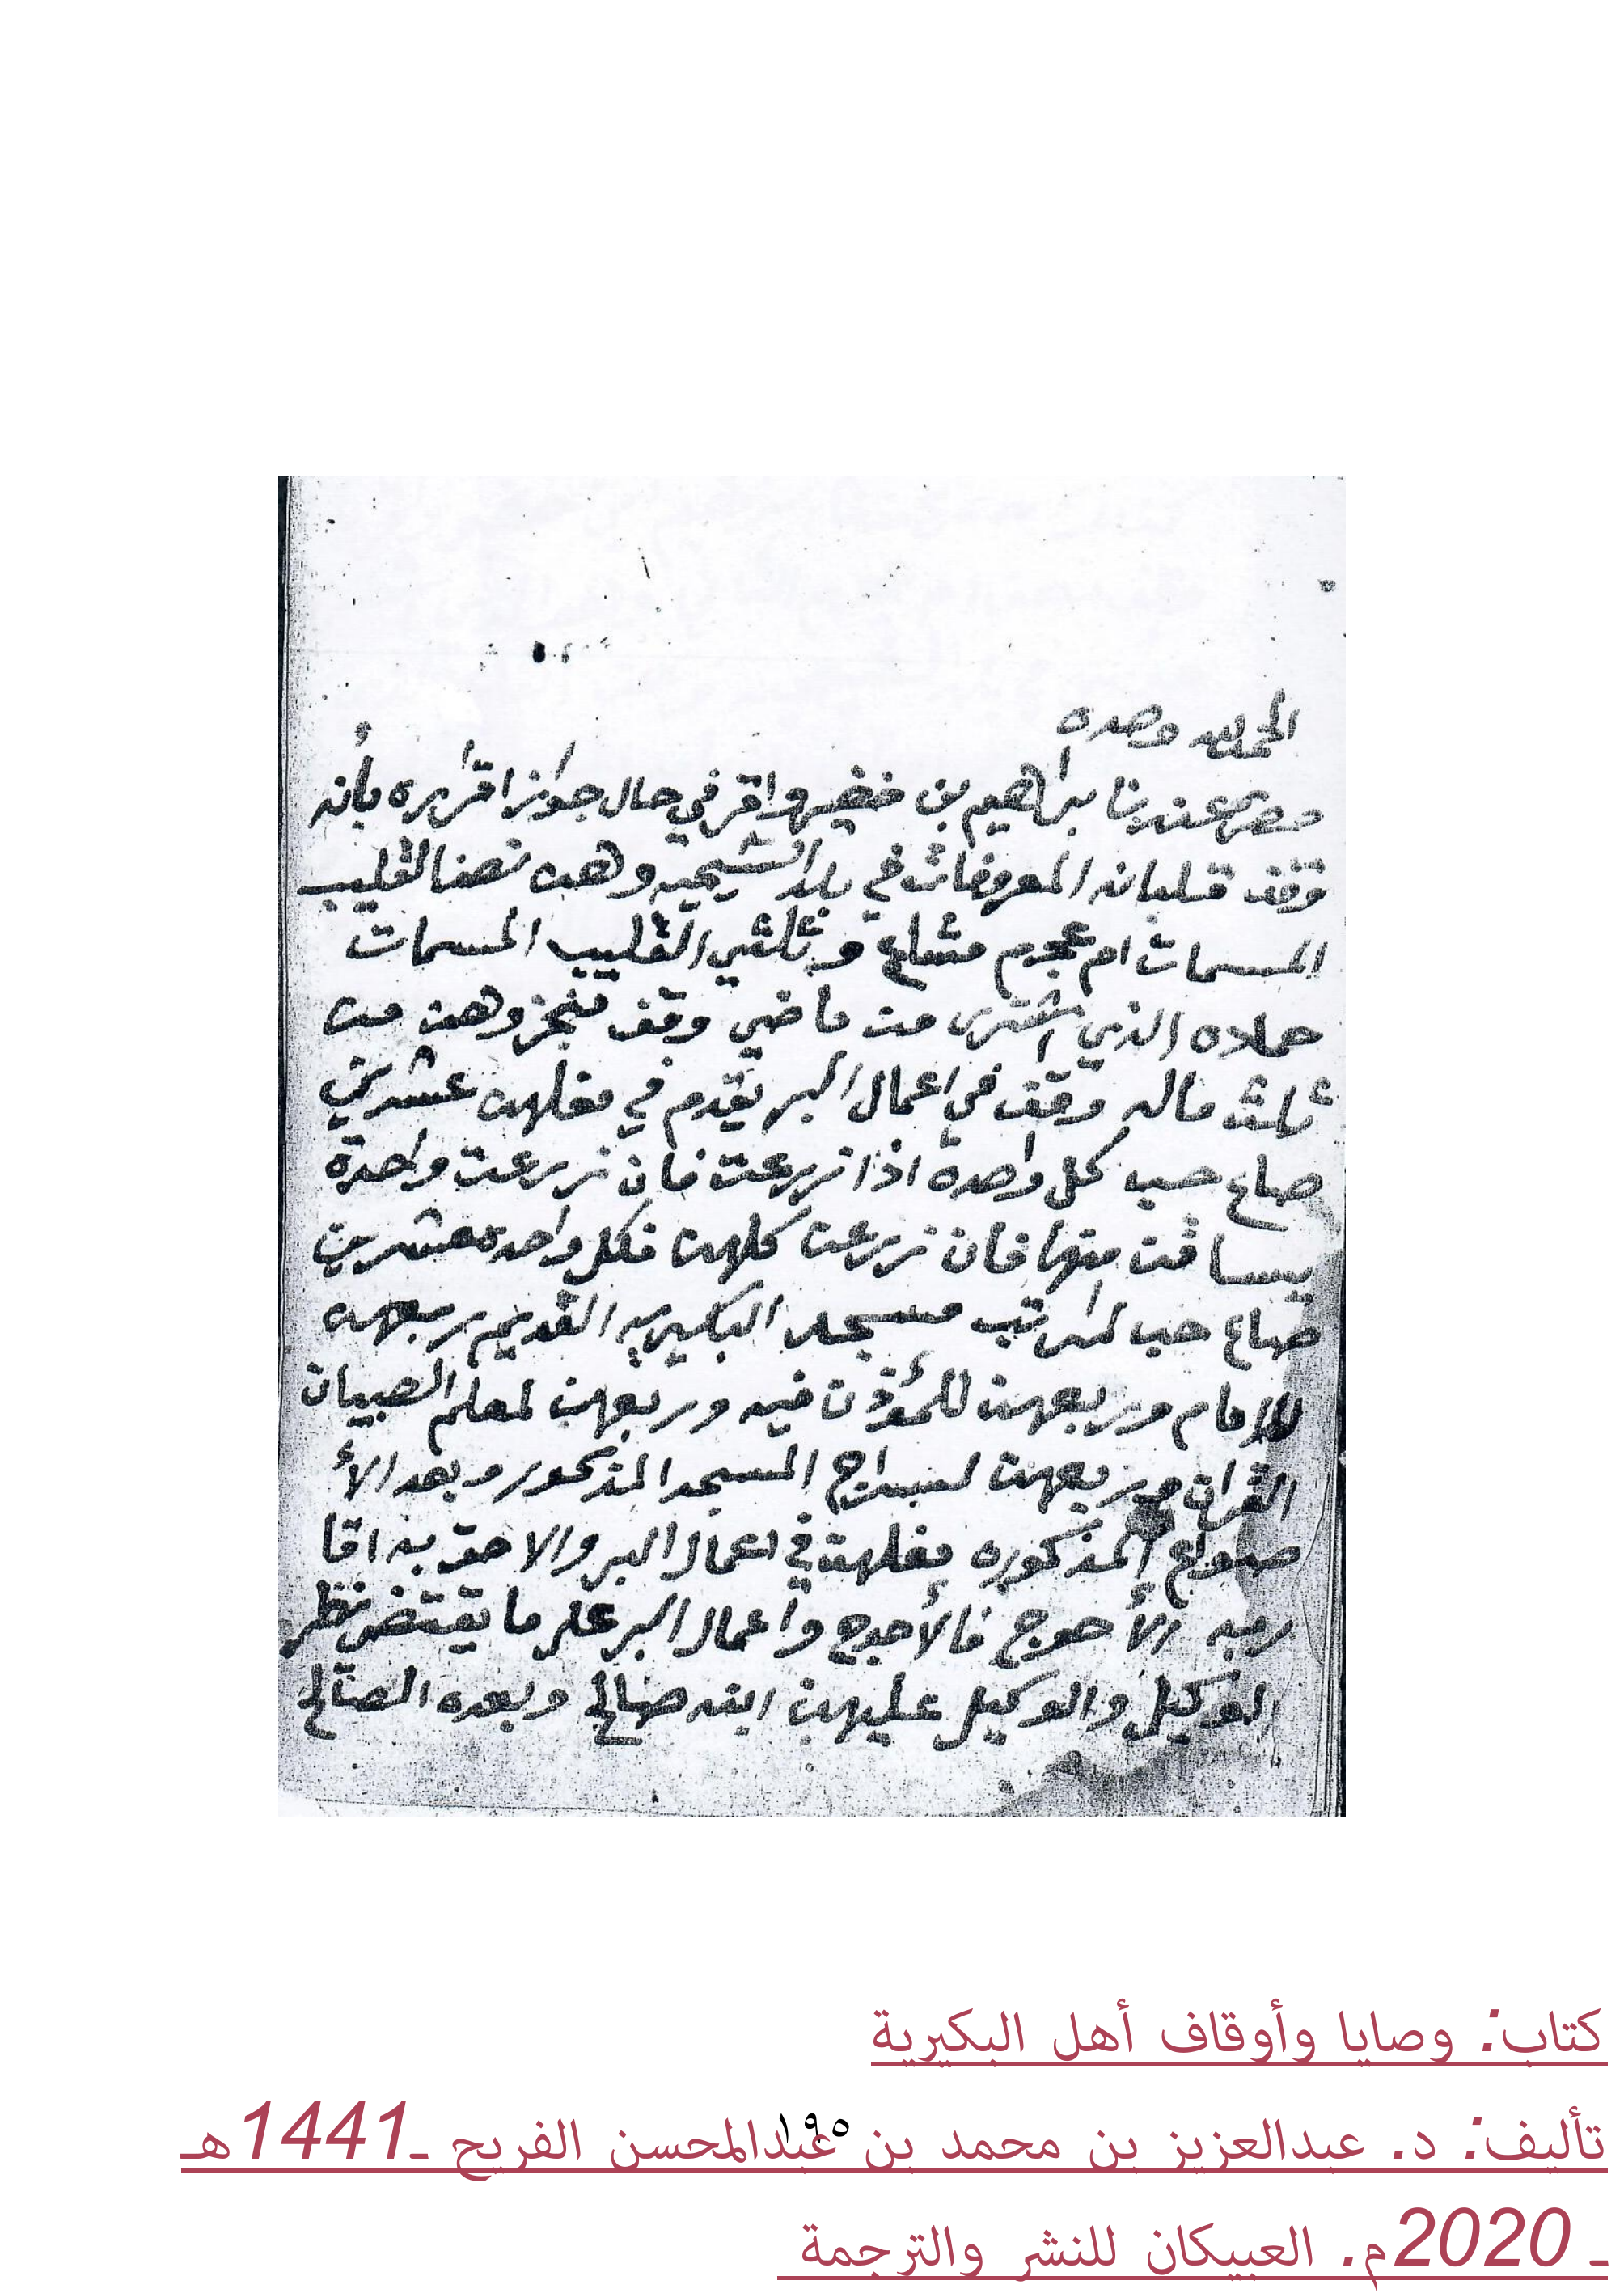 الحمد لله وحده
حضر عندنا براهيم بن خضير واقر في حال جواز اقراره بأنه
وقف قلبانه المعروفات في بلد الشيحيه وهن نصف القليب
المسمات ام عجرم مشاع وثلثي القليب المسمات
حماده الذي اشترى من ماضي وقف منجز وهن من
ثلث ماله وقف في اعمال البر يقدم في مغلهن عشرين
صاع حب كل واحدة اذا زرعت فان زرعت واحدة
يساقت منها فان زرعت كلهن فكل واحدة عشرين
صاع حب لمراتب مسجد البكيريه القديم ربعهن
للامام وربعهن للمؤذن فيه وربعهن لمعلم الصبيان
القران وربعهن لسراج المسجد المذكور وبعد الأ
صواع المذكوره مغلهن في اعمال البر والاحق به اقا
ربه الأحوج فالأحوج واعمال البر على ما يقتضى نظر
الوكيل والوكيل عليهن ابنه صالح وبعده الصالح
كتاب: وصايا وأوقاف أهل البكيرية
تأليف: د. عبدالعزيز بن محمد بن عبدالمحسن الفريح ـ1441هـ
١٩٥
ـ 2020م. العبيكان للنشر والترجمة